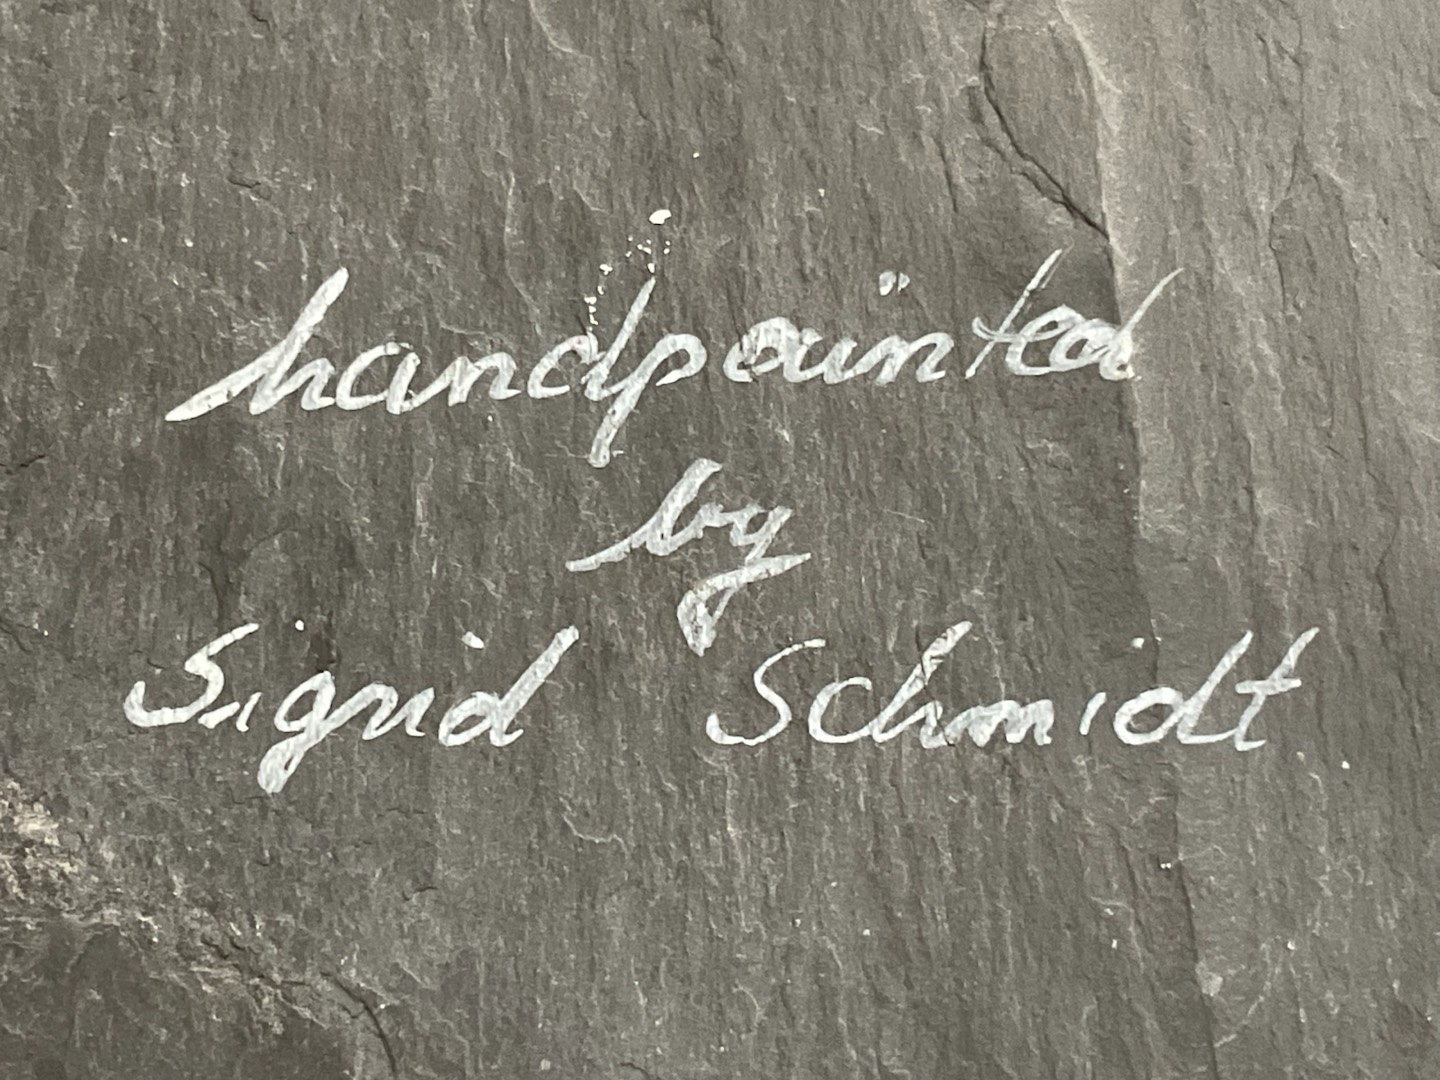 handpainted
by
Sigrid Schmidt